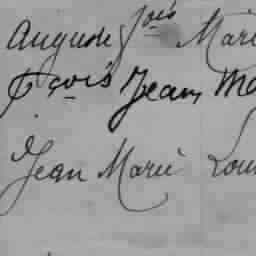 Auguste Jois Mari
Fçois Jean Ma
Jean Marie Lou